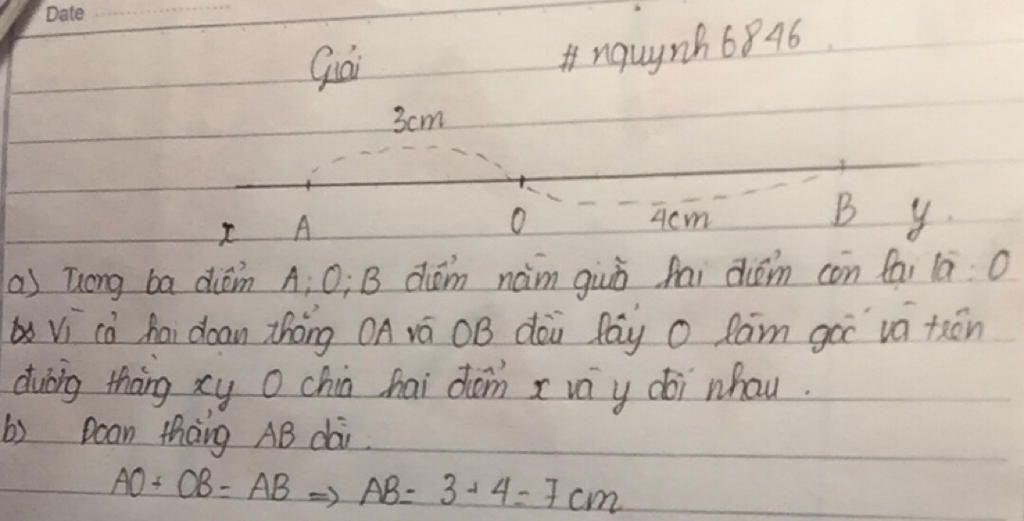 Date
Giải # nquynh6846
3cm
x A O 4cm B y
a) Trong ba điểm A; O; B điểm nằm giữa hai điểm còn lại là: O
Vì cả hai đoạn thẳng OA và OB đều lấy O làm gốc và trên
đường thẳng xy O chia hai điểm x và y đối nhau.
b) Đoạn thẳng AB dài.
AO + OB = AB => AB = 3 + 4 = 7 cm